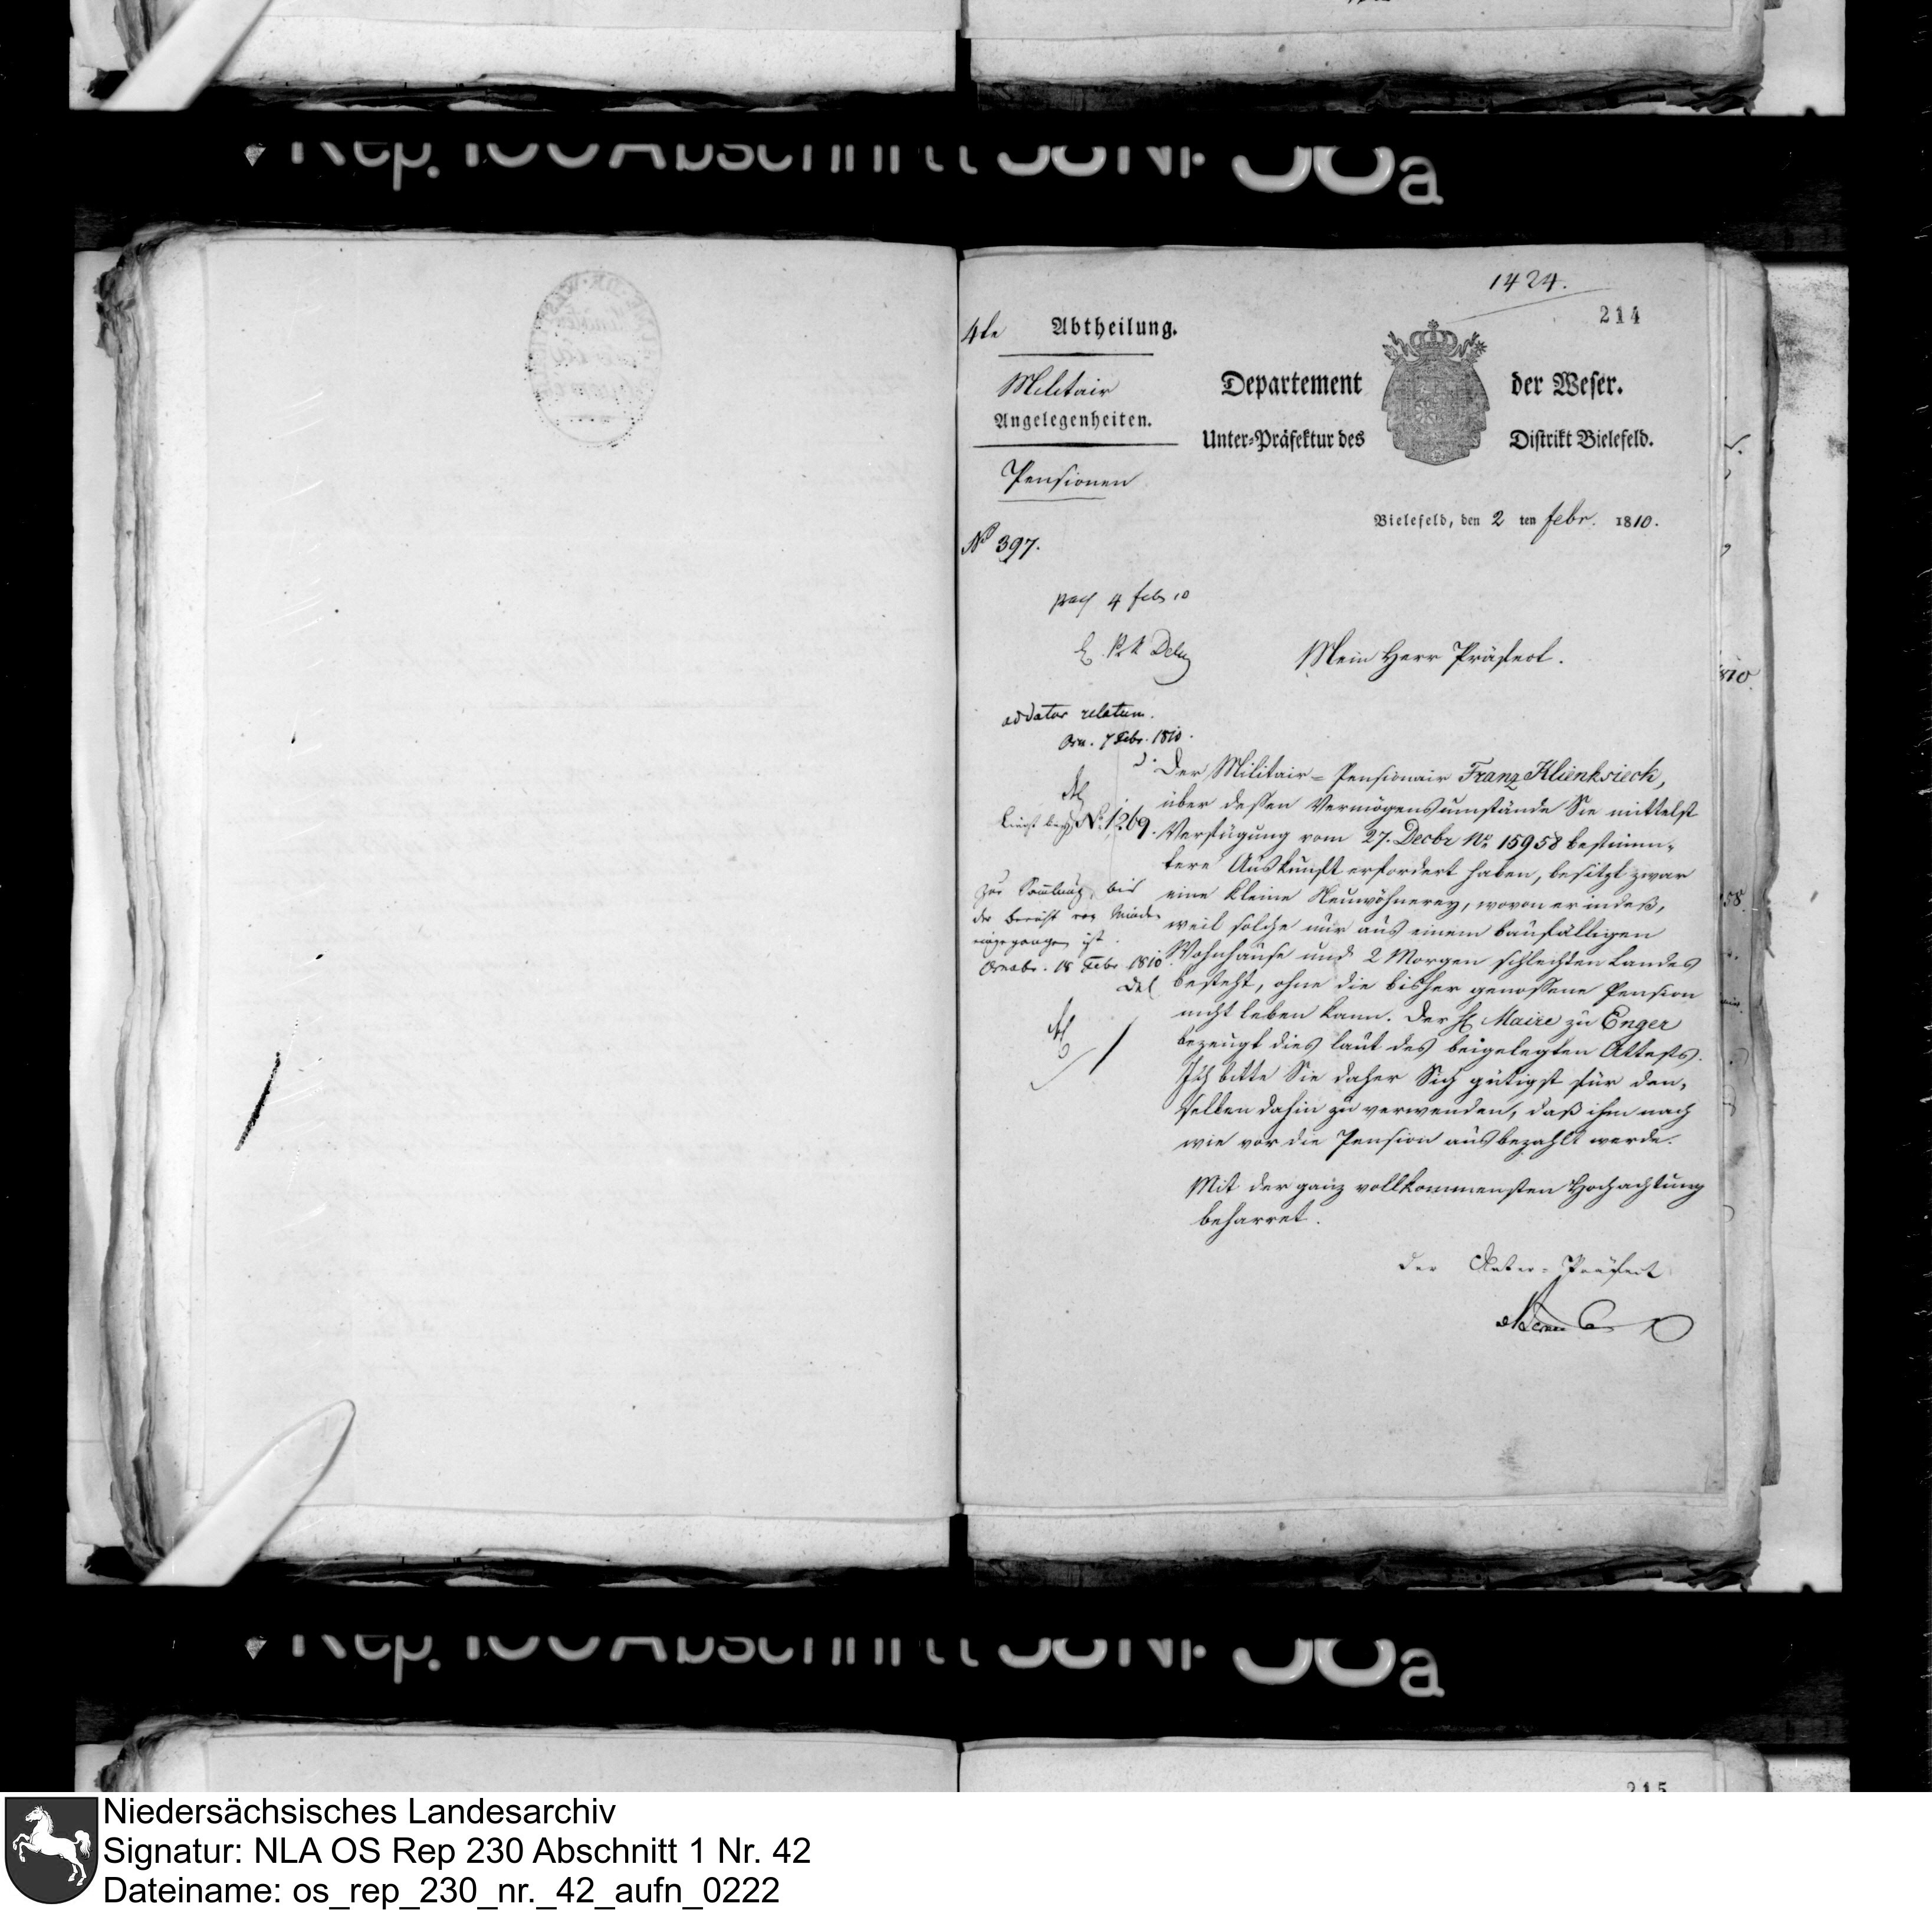 Rep. 100 Abschnitt 38 Nr 38a
1424.
214
4te Abtheilung.
Militair
Angelegenheiten.
Pensionen
Departement der Weser.
Unter-Präfektur des Distrikt Bielefeld.
Bielefeld, den 2 ten Febr. 1810.
No 397.
4 Feb 10
Mein Herr Präfect.
addatur relatum.
Osn. 7 Febr. 1810.
No 1269.
zur Samlung, bis
der Bericht von Minden
eingegangen ist.
Osnabr. 18 Febr 1810
Der Militair-Pensionair Franz Klienksieck,
über dessen Vermögensumstände Sie mittelst
Verfügung vom 27. Decbr No 15958 bestimm-
tere Auskunft erfordert haben, besitzt zwar
eine kleine Neuwöhnerey, wovon er indeß,
weil solche nur aus einem baufälligen
Wohnhause und 2 Morgen schlechten Landes
besteht, ohne die bisher genossene Pension
nicht leben kann. Der H. Maire zu Enger
bezeugt dies laut des beigelegten Attests.
Ich bitte Sie daher Sich gütigst für den-
selben dahin zu verwenden, daß ihm nach
wie vor die Pension ausbezahlt werde.
Mit der ganz vollkommensten Hochachtung
beharret.
Der Unter-Präfect
Rep. 100 Abschnitt 38 Nr 38a
215
Niedersächsisches Landesarchiv
Signatur: NLA OS Rep 230 Abschnitt 1 Nr. 42
Dateiname: os_rep_230_nr._42_aufn_0222